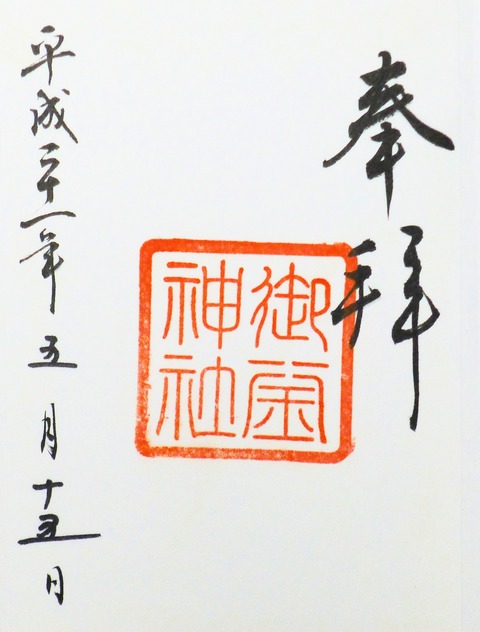 奉拝
御
神社
平成二十一年五月十五日